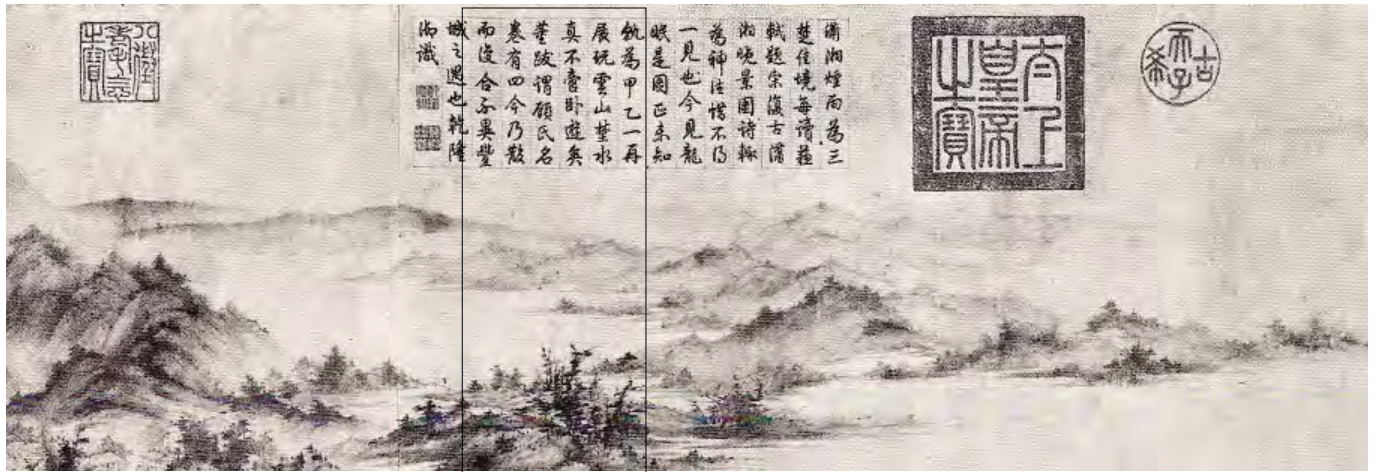 古希天子
太上皇帝之寶
瀟湘煙雨為三
楚佳境每讀蘇
軾題宋復古瀟
湘晚景圖詩極
為神往惜不得
一見也今見龍
眠是圖正未知
孰為甲乙一再
展玩雲山埜水
真不啻卧遊矣
董跋謂顧氏名
卷有四今乃散
而復合不異豐
城之遇也乾隆
御識
八徵耄念之寶